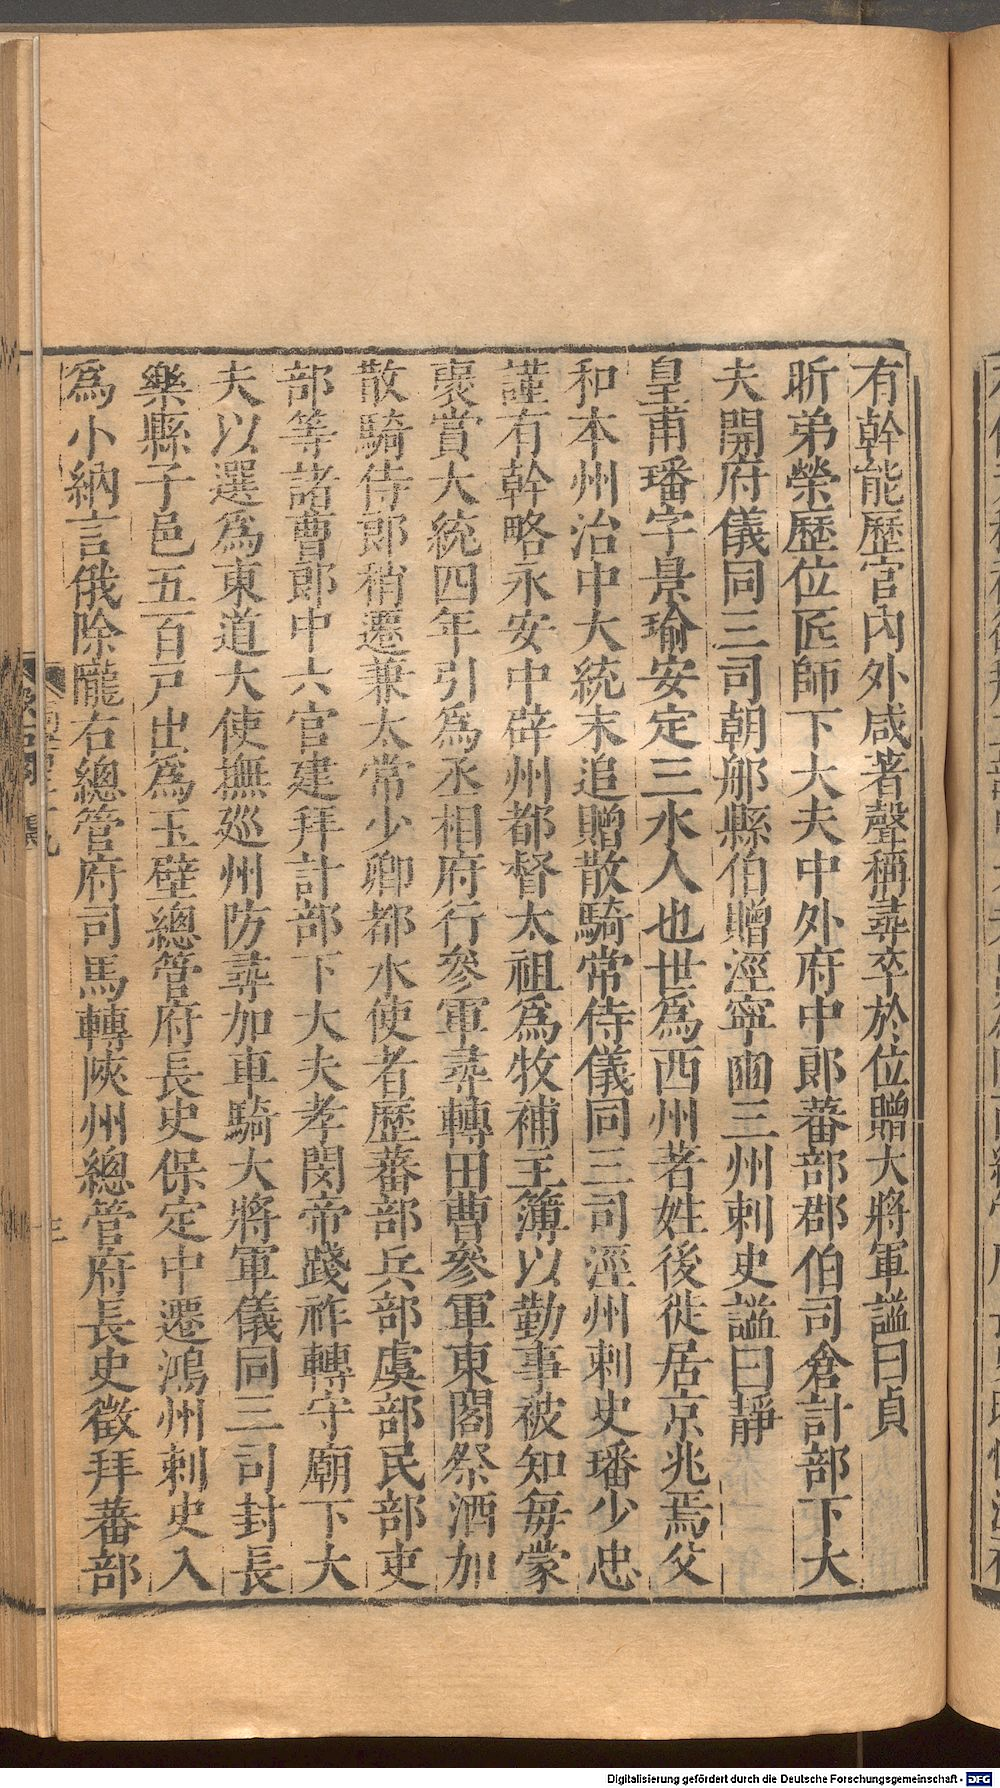 有幹能歷官內外咸著聲稱尋卒於位贈大將軍謚曰貞
昕弟榮歷位匠師下大夫中外府中郎蕃部郡伯司倉計部下大
夫開府儀同三司朝𨚗縣伯贈涇寧豳三州刺史謚曰靜
皇甫璠字景瑜安定三水人也世爲西州著姓後徙居京兆焉父
和本州治中大統末追贈散騎常侍儀同三司涇州刺史璠少忠
謹有幹略永安中辟州都督太祖爲牧補主簿以勤事被知每蒙
襃賞大統四年引爲丞相府行參軍尋轉田曹參軍東閣祭酒加
散騎侍郎稍遷兼太常少卿都水使者歷蕃部兵部虞部民部吏
部等諸曹郎中六官建拜計部下大夫孝閔帝踐祚轉守廟下大
夫以選爲東道大使撫巡州防尋加車騎大將軍儀同三司封長
樂縣子邑五百戸出爲玉壁總管府長史保定中遷鴻州刺史入
爲小納言俄除隴右總管府司馬轉陜州總管府長史徵拜蕃部
Digitalisierung gefördert durch die Deutsche Forschungsgemeinschaft - DFG